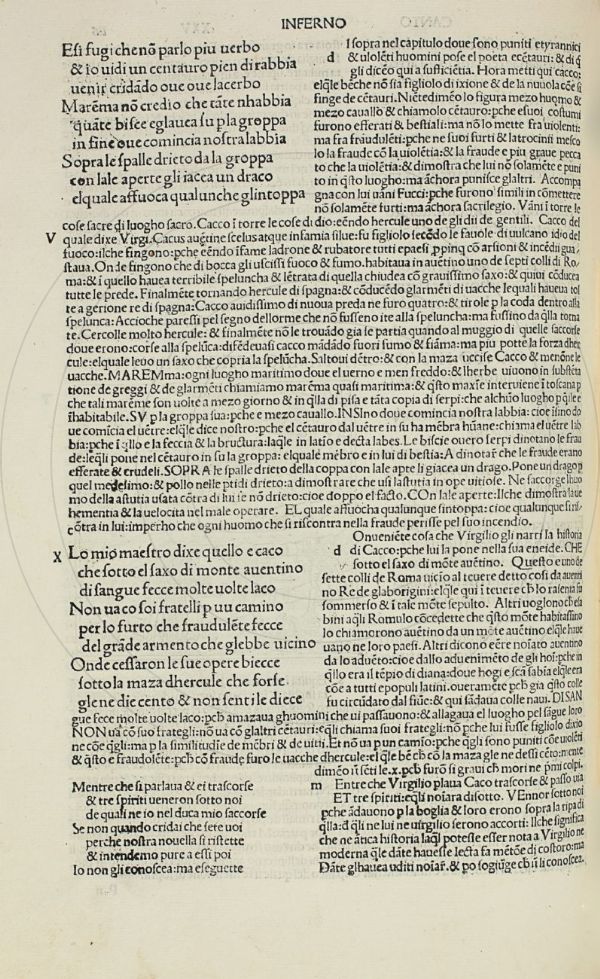 INFERNO
Esi fugi che nõ parlo piu uerbo
& io uidi un centauro pien di rabbia
uenir cridãdo oue oue lacerbo
Marẽma non credio che tãte nhabbia
quãte bisce eglauea su p la groppa
in fine oue comincia nostra labbia
Sopra le spalle drieto da la groppa
con lale aperte gli iacea un draco
el quale affuoca qualunche glintoppa
I sopra nel capitulo doue sono puniti e tyrannici
d & uiolẽti huomini pose el poeta e cẽtauri: & di q
gli dicẽo qui a sufficiẽtia. Hora metti qui cacco:
elq̃le bẽche nõ sia figliolo di ixione & de la nuuola cõe si
finge de cẽtauri. Niẽtedimẽo lo figura mezo huomo &
mezo cauallo & chiamolo cẽtauro: pche e suoi costumi
furono efferati & bestiali: ma nõ lo mette fra uiolenti:
ma fra fraudulẽti: pche ne suoi furti & latrocinii mesco
lo la fraude cõ la uiolẽtia: & la fraude e piu graue pecca
to che la uiolẽtia: & dimostra che lui nõ solamẽte e puni
to in q̃sto luogho: ma ãchora punisce glaltri. Accompa
gna con lui uãni Fucci: pche furono simili in cõmettere
nõ solamẽte furti: ma ãchora sacrilegio. Vãni ĩ torre le
cose sacre di luogho sacro. Cacco ĩ torre le cose di dio: eẽndo hercule uno de gli dii de gentili. Cacco del
V quale dixe Virgi. Cacus auẽtine scelus atque infamia silue: fu figliolo secẽdo le fauole di uulcano idio del
fuoco: ilche fingono: pche eẽndo ifame ladrone & rubatore tutti e paesi ppinq̃ cõ arsioni & incẽdii gua
staua. Onde fingono che di bocca gli uscissi fuoco & fumo. habitaua in auẽtino uno de septi colli di Ro-
ma: & ĩ quello hauea terribile speluncha & lẽtrata di quella chiudea cõ grauissimo saxo: & quiui cõducea
tutte le prede. Finalmẽte tornando hercule di spagna: & cõducẽdo glarmẽti di uacche lequali haueua tol
te a gerione re di spagna: Cacco auidissimo di nuoua preda ne furo quatro: & tirole p la coda dentro alla
spelunca: Accioche paressi pel segno dellorme che nõ fusseno ite alla speluncha: ma fussino da q̃lla torna
te. Cercolle molto hercule: & finalmẽte nõ le trouãdo gia se partia quando al muggio di quelle saccorse
doue erono: corse alla spelũca: difẽdeuasi cacco mãdãdo fuori fumo & fiãma: ma piu potte la forza dher
cule: elquale leuo un saxo che copria la spelũcha. Saltoui dẽtro: & con la maza uccise Cacco & menõne le
uacche. MAREMma: ogni luogho maritimo doue el uerno e men freddo: & lherbe uiuono in substẽta
tione de greggi & de glarmẽti chiamiamo marẽma quasi maritima: & q̃sto maxĩe interuiene ĩ toscana p
che tali marẽme son uolte a mezo giorno & in q̃lla di pisa e tãta copia di serpi: che alchũo luogho p q̃lle e
ĩhabitabile. SV p la groppa sua: pche e mezo cauallo. INSIno doue comincia nostra labbia: cioe ĩsino do
ue comĩcia el uẽtre: elq̃le dice nostro: pche el cẽtauro dal uẽtre in su ha mẽbra hũane: chiama el uẽtre lab
bia: pche ĩ q̃llo e la feccia & la bructura: laq̃le in latĩo e decta labes. Le biscie ouero serpi dinotano le frau
de: leq̃li pone nel cẽtauro in su la groppa: elquale mẽbro e in lui di bestia: A dinotar̃ che le fraude erano
efferate & crudeli. SOPRA le spalle drieto della coppa con lale apte li giacea un drago. Pone un dragop
quel medesimo: & pollo nelle pti di drieto: a dimostrare che usi lastutia in ope uitiose. Ne saccorge lhuo
mo della astutia usata cõtra di lui se nõ drieto: cioe doppo el facto. COn lale aperte: Ilche dimostra laue
hementia & la uelocita nel male operare. EL quale affuocha qualunque sintoppa: cioe qualunque sirĩc
cõtra in lui: imperho che ogni huomo che si riscontra nella fraude perisse pel suo incendio.
X Lo mio maestro dixe quello e caco
che sotto el saxo di monte auentino
di sangue fecce molte uolte laco
Non ua co soi fratelli p uu camino
per lo furto che fraudulẽte fecce
del grãde armento che glebbe uicino
Onde cessaron le sue opere biecce
sotto la maza dhercule che forse
gle ne die cento & non senti le diece
Onueniẽte cosa che Virgilio gli narri la historia
d di Cacco: pche lui la pone nella sua eneide. CHE
sotto el saxo di mõte auẽtino. Questo e uno de
sette colli de Roma uicio al teuere detto cosi da auenti
no Re de glaborigini: elq̃le qui ĩ teuere ch̃ lo rasenta fu
sommerso & ĩ tale mõte sepulto. Altri uoglono ch̃ e sa
bini a q̃li Romulo cõcedette che q̃sto mõte habitassino
lo chiamorono auẽtino da un mõte auẽtino elq̃le haue
uano ne loro paesi. Altri dicono eẽre noiato auentino
da lo aduẽto: cioe dallo aduenimẽto de gli hoĩ: pche in
q̃llo era il tẽpio di diana: doue hogi e scã sabia elq̃le era
cõe a tutti e populi latini. oueramẽte pch̃ gia q̃sto colle
fu circũdato dal fiũe: & qui sãdaua colle naui. DI SAN
gue fece molte uolte laco: pch̃ amazaua ghuomini che ui passauono: & allagaua el luogho pel sãgue loro
NON ua cõ suo frategli: nõ ua cõ glaltri cẽtauri: e q̃li chiama suoi frategli: nõ pche lui fusse figliolo dixio
ne cõe q̃gli: ma p la similitudĩe de mẽbri & de uitii. Et nõ ua p un camĩo: pche q̃gli sono puniti cõe uiolẽti
& q̃sto e fraudolẽte: pch̃ cõ fraude furo le uacche dhercule: el q̃le bẽ ch̃ cõ la maza gle ne dessi cẽto: mente
dimẽo nĩ sẽti le .x. pch̃ furõ si graui ch̃ mori ne pmi colpi.
Mentre che si parlaua & ei trascorse
& tre spiriti ueneron sotto noi
de quali ne io nel duca mio saccorse
Se non quando cridai che sete uoi
perche nostra nouella si ristette
& intendemo pure a essi poi
Io non gli conoscea: ma e seguette
m Entre che Virgilio plaua Caco trascorse & passo uia
ET tre spiriti: eq̃li noiara disotto. VEnnor sotto noi
pche ãdauono p la boglia & loro erono sopra la ripa di
q̃lla: d q̃li ne lui ne uirgilio serono accorti: Ilche significa
che ne ãtica historia laq̃l potesse esser nota a Virgilio ne
moderna q̃le dãte hauesse lecta fa mẽtõe di costoro: ma
Dãte glhauea uditi noiar̃. & po sogiũge ch̃ nĩ li conoscea.